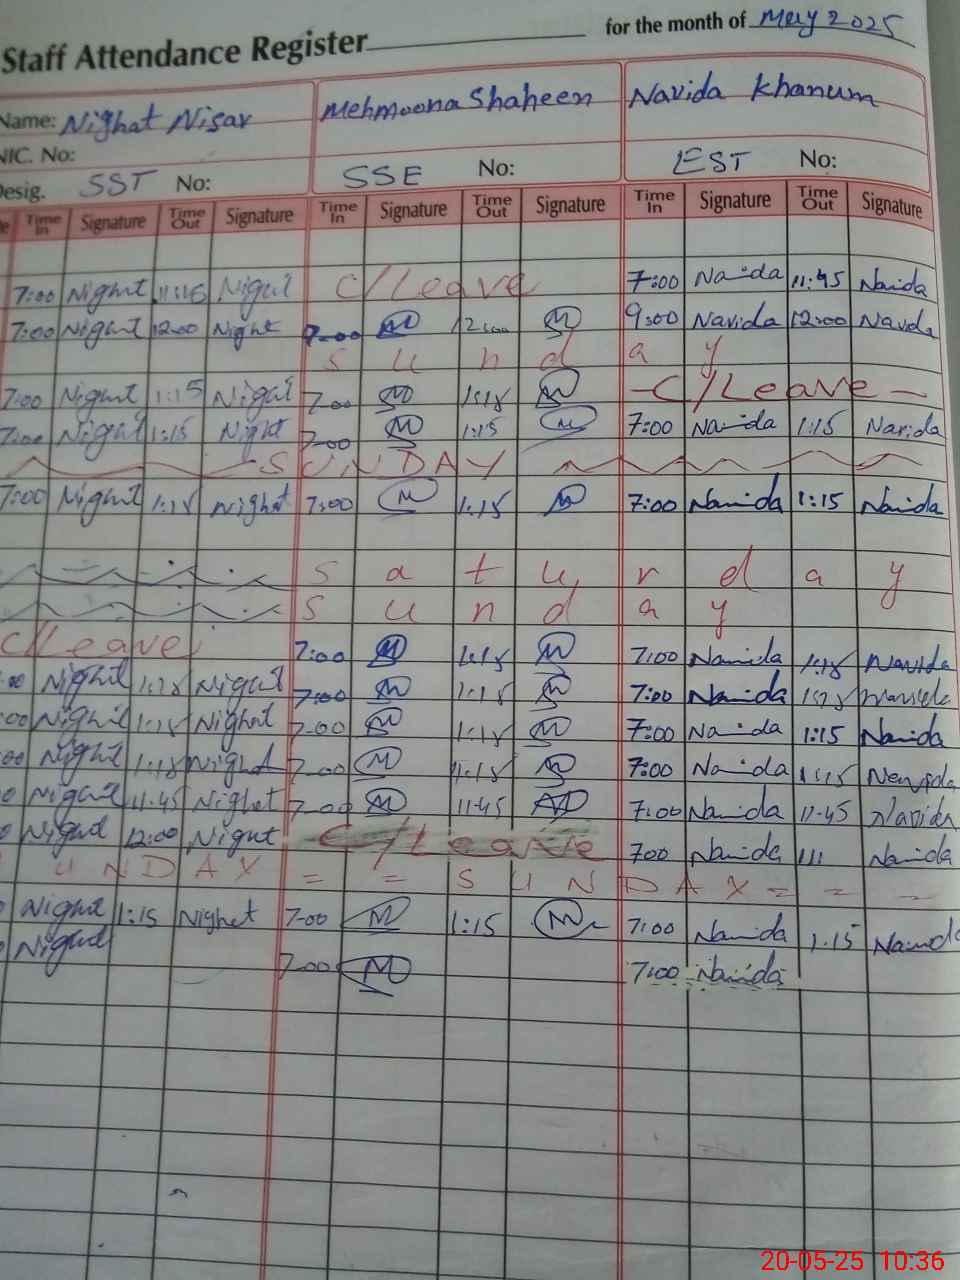 Staff Attendance Register for the month of May 2025
Name: Nighat Nisar Mehmoona Shaheen Navida Khanum
NIC. No:
Desig. SST No: SSE No: EST No:
Time In Signature Time Out Signature Time In Signature Time Out Signature Time In Signature Time Out Signature
7:00 Nighat 11:15 Nighat C/Leave 7:00 Navida 11:45 Navida
7:00 Nighat 12:00 Nighat 7:00 M 12:00 M 9:00 Navida 12:00 Navida
Sunday
7:00 Nighat 1:15 Nighat 7:00 M 1:15 M - C/Leave -
7:00 Nighat 1:15 Nighat 7:00 M 1:15 M 7:00 Navida 1:15 Navida
SUNDAY
7:00 Nighat 1:15 Nighat 7:00 M 1:15 M 7:00 Navida 1:15 Navida
Saturday
Sunday
C/Leave 7:00 M 1:15 M 7:00 Navida 1:15 Navida
:00 Nighat 1:15 Nighat 7:00 M 1:15 M 7:00 Navida 1:15 Navida
00 Nighat 1:15 Nighat 7:00 M 1:15 M 7:00 Navida 1:15 Navida
00 Nighat 1:15 Nighat 7:00 M 1:15 M 7:00 Navida 1:15 Navida
0 Nighat 11:45 Nighat 7:00 M 11:45 M 7:00 Navida 11:45 Navida
0 Nighat 12:00 Nighat C/Leave 700 Navida 111 Navida
UNDAY = = SUNDAY = = -
Nighat 1:15 Nighat 7:00 M 1:15 M 7:00 Navida 1:15 Navida
Nighat 7:00 M 7:00 Navida
20-05-25 10:36